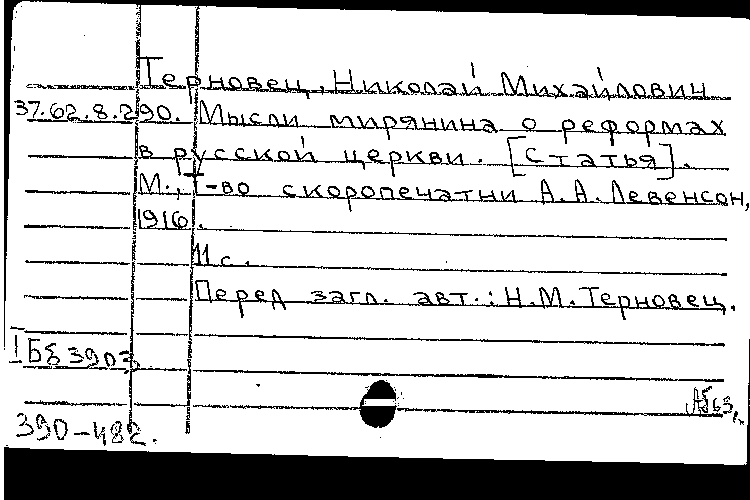 Терновец, Николай Михайлович
37.62.8.290. Мысли мирянина о реформах
в русской церкви. [Статья].
М., Т-во скоропечатни А.А. Левенсон,
1916.
11 с.
Перед загл. авт.: Н.М. Терновец.
390-482.